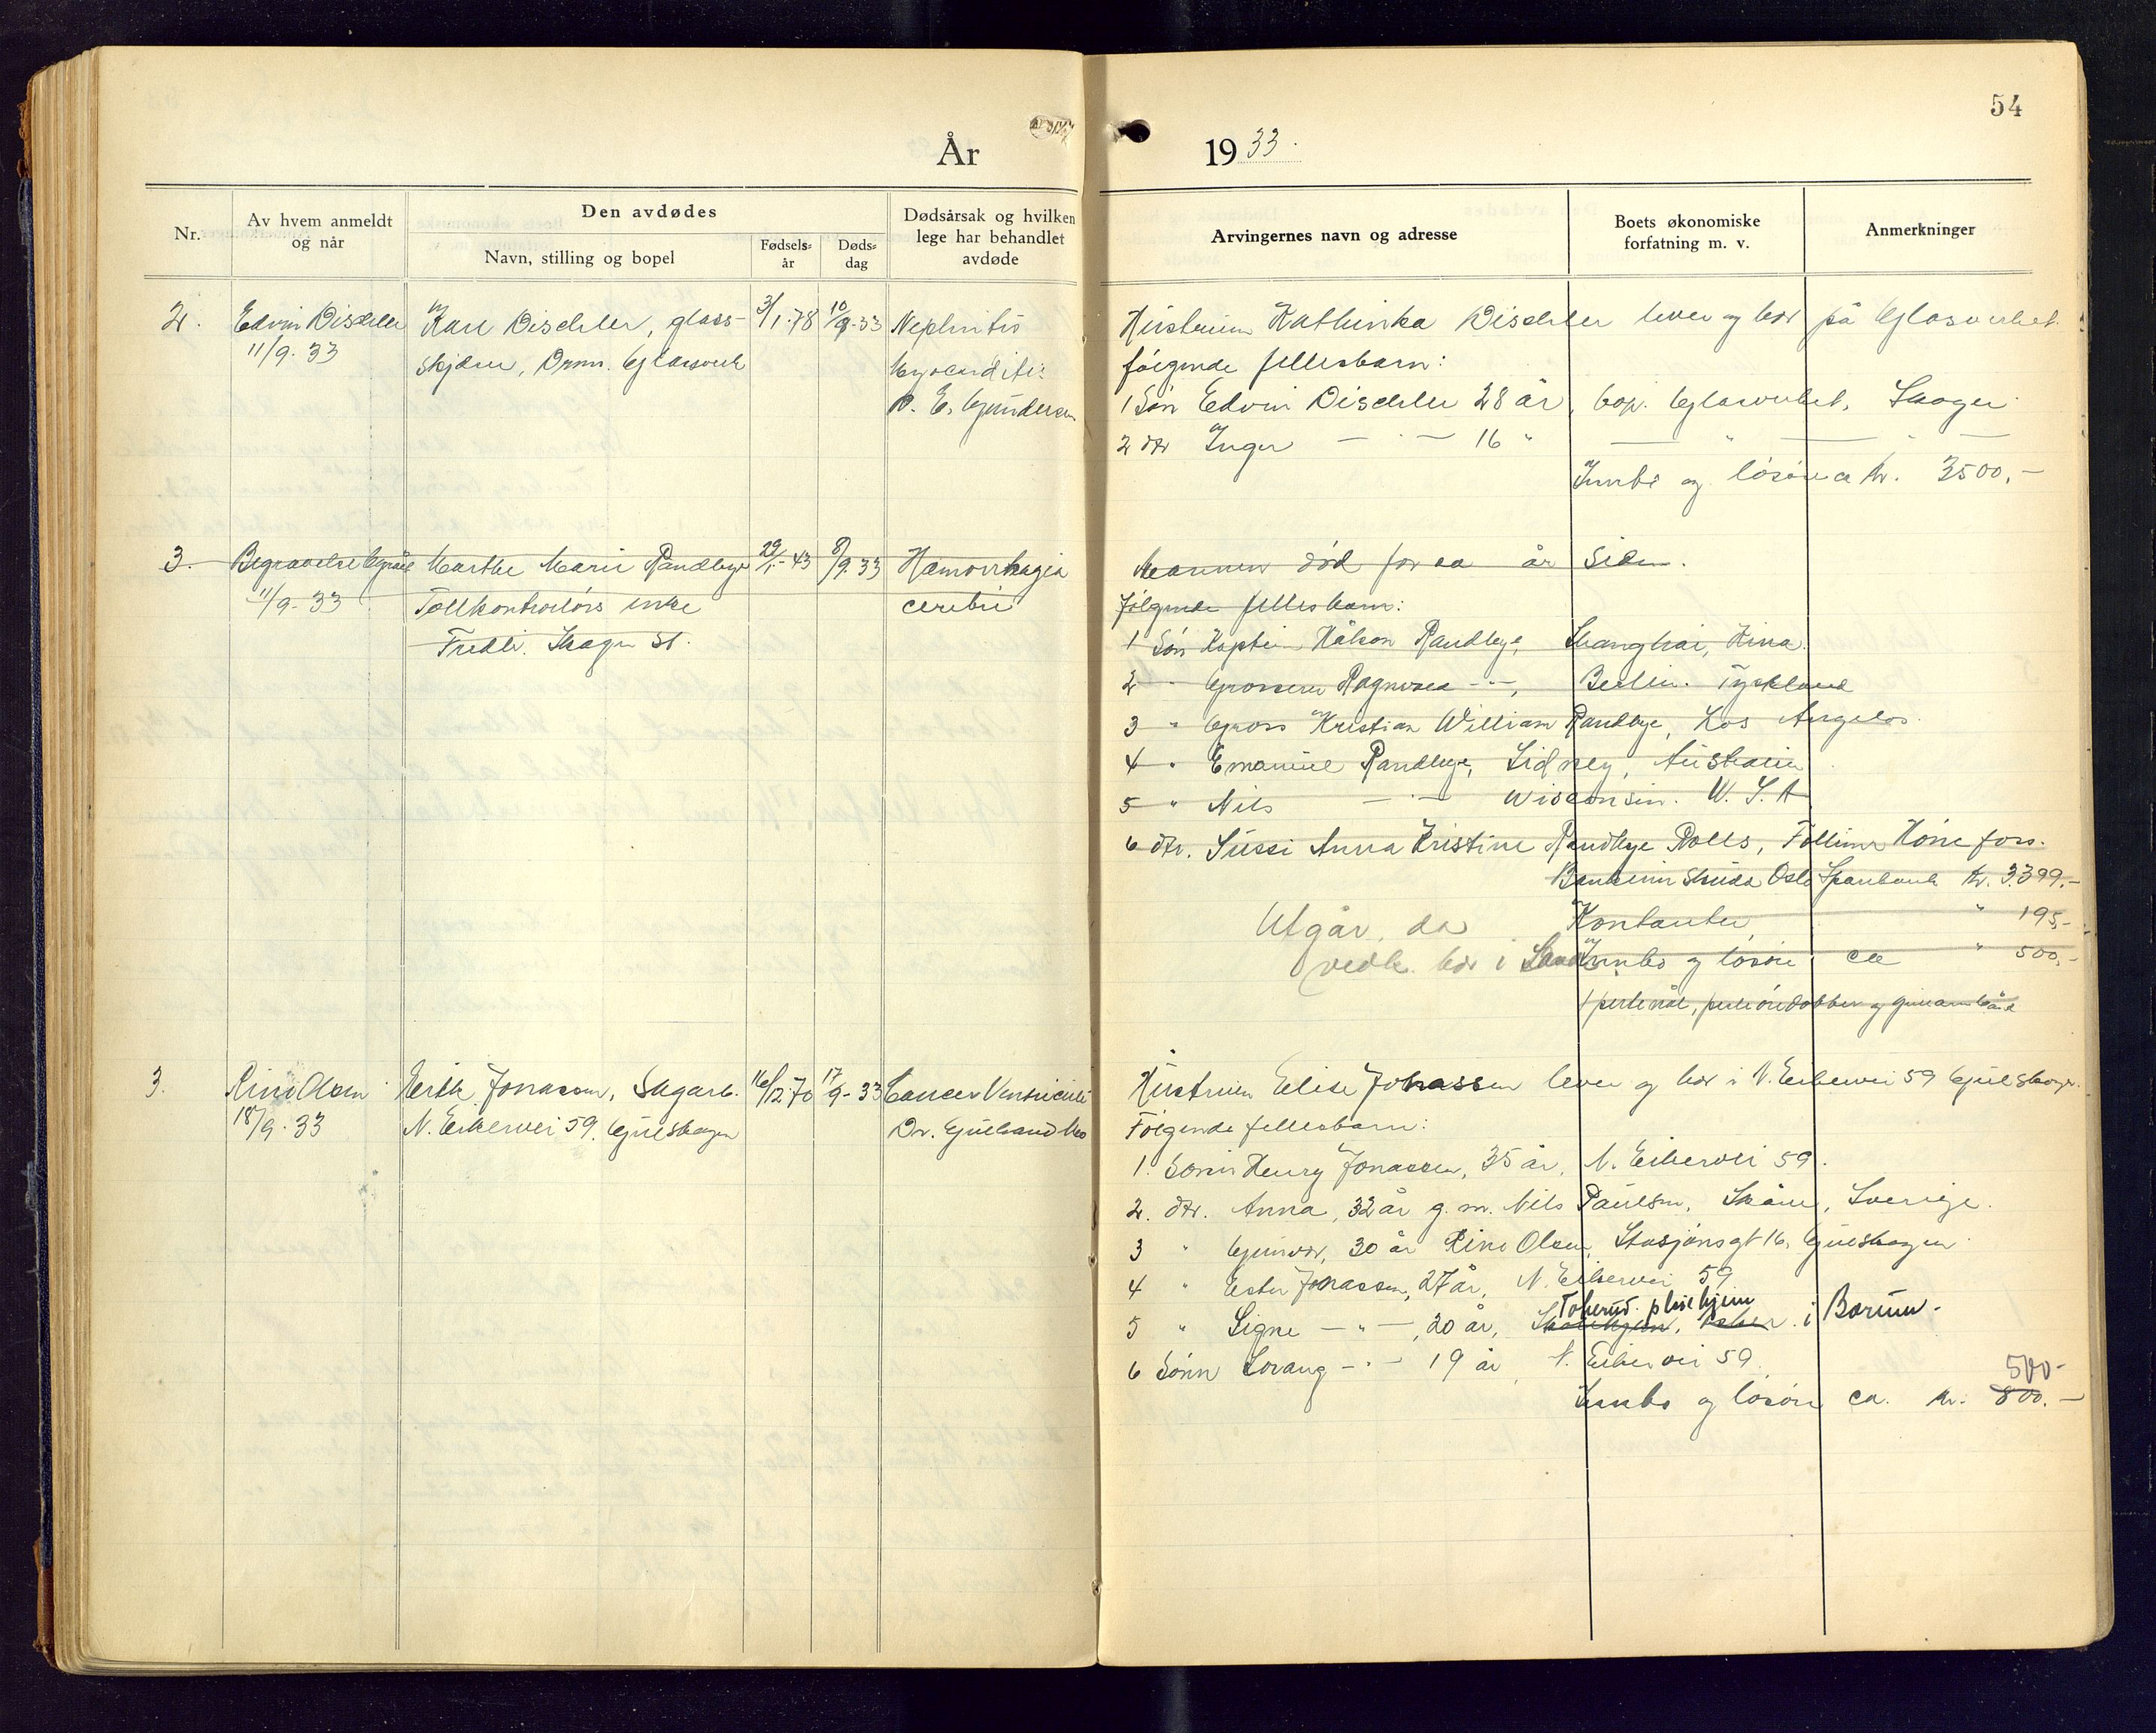 54
År 1933.
Nr.
Av hvem anmeldt og når
Den avdødes
Navn, stilling og bopel
Fødsels-år
Døds-dag
Dødsårsak og hvilken lege har behandlet avdøde
Arvingernes navn og adresse
Boets økonomiske forfatning m. v.
Anmerkninger
2. Edvin Dischler Karl Dischler, glass- 3/1.78 10/9.33 Nephritis
11/9.33 skjærer, Drm. Glassverk Myocarditis
E. Gundersen
Hustruen Kathinka Dischler lever og bor på Glasverket.
følgende fellesbarn:
1 Søn Edvin Dischler 28 år, bop. Glasverket, Skoger
2 dtr Inger — " — 16 " — " — " —
Innbo og løsøre ca kr. 3500,-
3. Begravelsesbyrå Marthe Marie Randbye 29/1-43 8/9.33 Hæmorrhagia
11/9-33 Tollkontrolørs enke cerebri
Fredli. Skoger St.
Mannen død for ca år siden.
følgende fellesbarn:
1 Søn Kaptein Håkon Randbye, Shanghai, Kina.
2 " Grosserer Ragnvald - " -, Berlin. Tyskland
3 " Gross Kristian William Randbye, Los Angelos.
4 " Emanuel Randbye, Sidney, Australien
5 " Nils — " — Wisconsin. U. S. A
6 dtr. Sussi Anna Kristine Randbye Rolls, Follum Hönefoss.
Bankinnskudd Oslo Sparebank kr. 3399.-
Kontanter " 195,-
Utgår, da
vedk. bor i
Innbo og løsøre ca " 500,-
1 perlenål, perleøredobber og
3. Rino Olsen Erik Jonassen, Sagarb. 16/12.70 17/9-33 Cancer Ventriculi
18/9.33 N. Eikervei 59, Gulskogen Dr. Gulbrand
Hustruen Elise Jonassen lever og bor i N. Eikervei 59 Gulskogen.
Følgende fellesbarn:
1. Sønn Henry Jonassen, 35 år, N. Eikervei 59.
2. dtr. Anna, 32 år g. m. Nils Paulsen, Skåne, Sverige.
3 " Gunvor, 30 år Rino Olsen, Stasjonsgt 16, Gulskogen
4 " Ester Jonassen, 27 år, N. Eikervei 59
Tokerud pleiehjem
5 " Signe — " —, 20 år, i Bærum.
6 Sønn Lorang - " - 19 år N. Eikervei 59.
500-
Innbo og løsøre ca. kr. 800.-